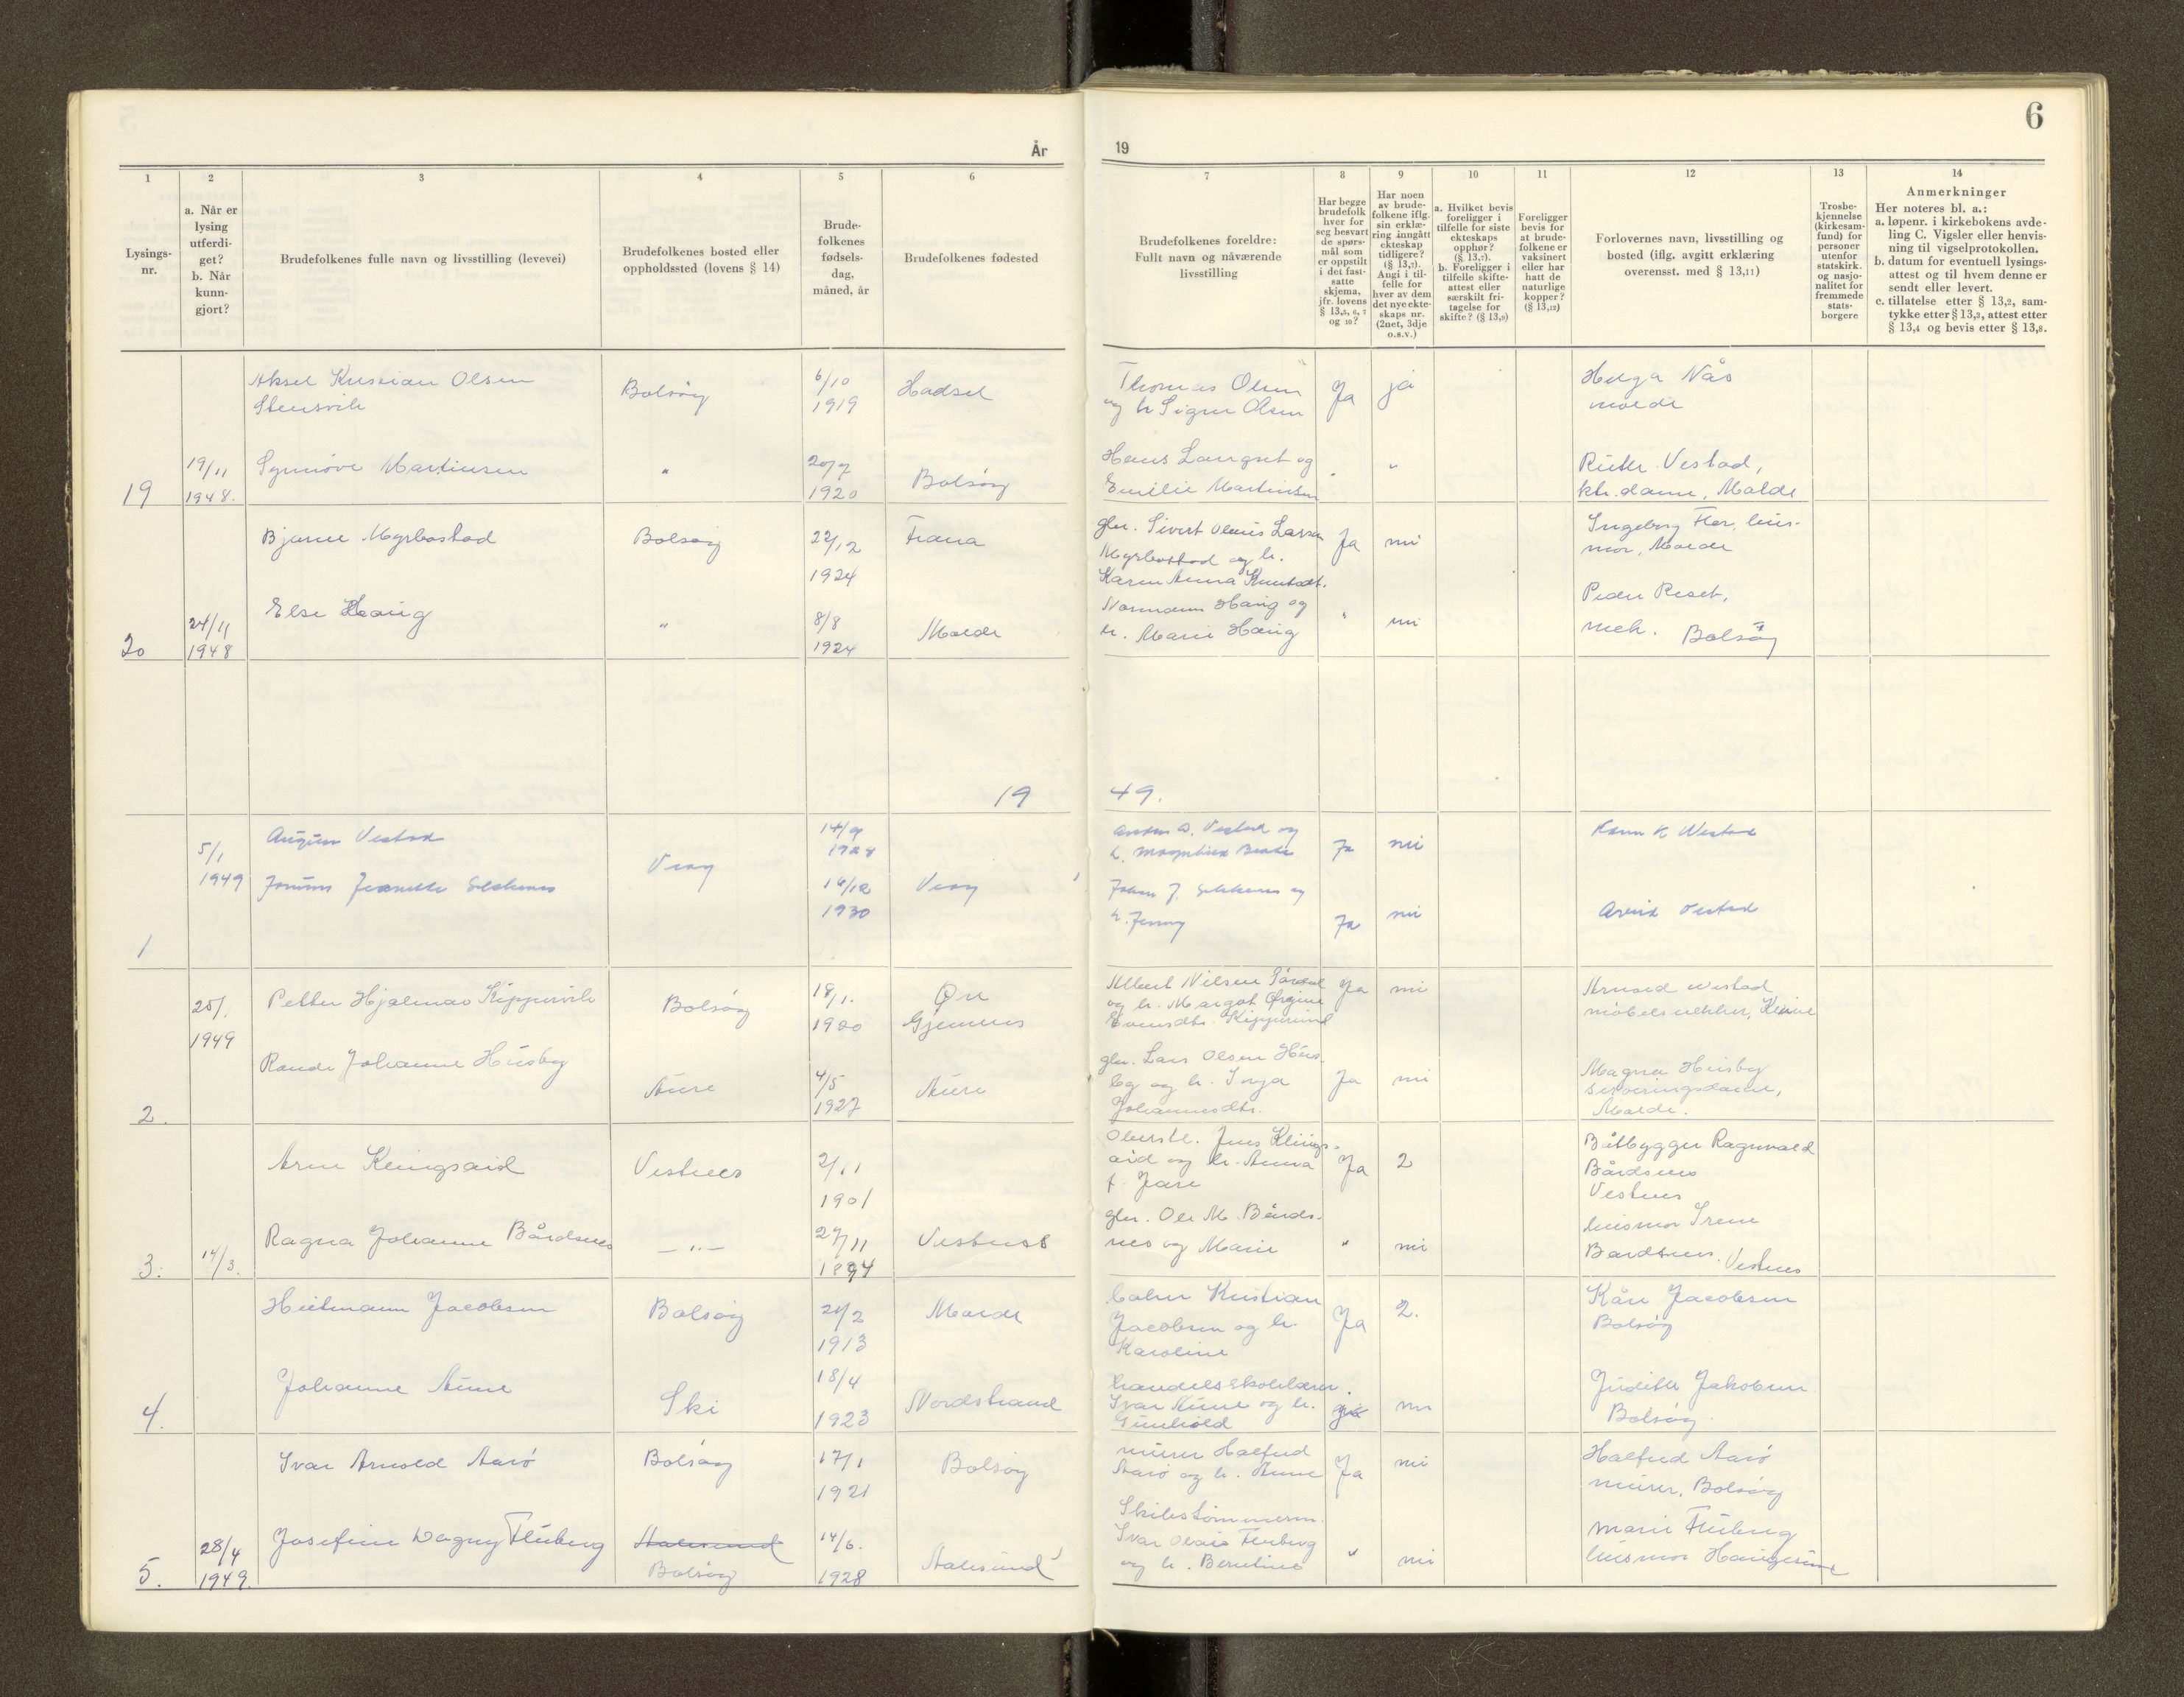 6
År 19
1 2 3 4 5 6 7 8 9 10 11 12 13 14
Lysings-
nr.
a. Når er
lysing
utferdi-
get?
b. Når
kunn-
gjort?
Brudefolkenes fulle navn og livsstilling (levevei)
Brudefolkenes bosted eller
oppholdssted (lovens § 14)
Brude-
folkenes
fødsels-
dag,
måned, år
Brudefolkenes fødested
Brudefolkenes foreldre:
Fullt navn og nåværende
livsstilling
Har begge
brudefolk
hver for
seg besvart
de spørs-
mål som
er oppstilt
i det fast-
satte
skjema,
jfr. lovens
§ 13,5, 6, 7
og 10?
Har noen
av brude-
folkene iflg.
sin erklæ-
ring inngått
ekteskap
tidligere?
(§ 13,7).
Angi i til-
felle for
hver av dem
det nye ekte-
skaps nr.
(2net, 3dje
o.s.v.)
a. Hvilket bevis
foreligger i
tilfelle for siste
ekteskaps
opphør?
(§ 13,7).
b. Foreligger i
tilfelle skifte-
attest eller
særskilt fri-
tagelse for
skifte? (§ 13,9)
Foreligger
bevis for
at brude-
folkene er
vaksinert
eller har
hatt de
naturlige
kopper?
(§ 13,12)
Forlovernes navn, livsstilling og
bosted (iflg. avgitt erklæring
overensst. med § 13,11)
Trosbe-
kjennelse
(kirkesam-
fund) for
personer
utenfor
statskirk.
og nasjo-
nalitet for
fremmede
stats-
borgere
Anmerkninger
Her noteres bl. a.:
a. løpenr. i kirkebokens avde-
ling C. Vigsler eller henvis-
ning til vigselprotokollen.
b. datum for eventuell lysings-
attest og til hvem denne er
sendt eller levert.
c. tillatelse etter § 13,2, sam-
tykke etter § 13,3, attest etter
§ 13,4 og bevis etter § 13,8.
Aksel Kristian Olsen
Stensvik
Bolsøy
6/10
1919
Hadsel
Thomas Olsen
og h. Signe Olsen
Ja
ja
Helga Nås
Molde
19
19/11
1948.
Synnøve Martinsen
"
20/7
1920
Bolsøy
Hans Langset og
Emilie Martinsen
"
"
Ruth Vestad,
ktr.dame, Molde
Bjarne Myrbostad
Bolsøy
22/12
1924
Fræna
gbr. Sivert Olaus Larsen
Myrbostad og h.
Karen Anna Knutsdt.
Ja
nei
Ingeborg Flor, hus-
mor, Molde
20
24/11
1948
Else Haug
"
8/8
1924
Molde
Normann Haug og
h. Marie Haug
"
nei
Peder Reset,
mek. Bolsøy
19 49.
1
5/1
1949
August Vestad
Jorunn Jeanette Solskenes
Veøy
14/9
1928
16/12
1930
Veøy
Anton O. Vestad og
h. Magnhild Beate
Ja
nei
Johan J. Solskenes og
h. Jenny
Ja
nei
Karen K Vestad
Arvid Vestad
2.
25/1
1949
Petter Hjalmar Kippervik
Bolsøy
18/1.
1920
Øre
Gjemnes
Albert Nilsen
og h. Margot Ørgine
Ja
nei
Arnold Vestad
møbelsnekker, Kleive
Randi Johanne Husby
Aure
4/5
1927
Aure
gbr. Lars Olsen Hus-
by og h. Inga
Johannesdtr.
Ja
nei
Magna Husby
serveringsdame,
Molde.
3.
14/3.
Arne Klungsaid
Vestnes
2/11
1901
Oberstl. Jens Klungs-
aid og h. Anna
f. Jare
Ja
2
Båtbygger Ragnvald
Bårdsnes
Vestnes
Ragna Johanne Bårdsnes
— " —
27/11
1894
Vestnes
gbr. Ole M. Bårds-
nes og Marie
"
nei
husmor Irene
Bardsnes. Vestnes
4.
Heitmann Jacobsen
Bolsøy
21/2
1913
Molde
Kristian
Jacobsen og h.
Karoline
Ja
2.
Kåre Jacobsen
Bolsøy
Johanne Aune
Ski
18/4
1923
Nordstrand
handelsskolelærer.
Ivar Aune og h.
Gunhild
nei
Judith Jakobsen
Bolsøy.
5.
28/4
1949.
Ivar Arnold Aarø
Bolsøy
17/1
1921
Bolsøy
murer Halfred
Aarø og h. Anne
Ja
nei
Halfred Aarø
murer, Bolsøy
Josefine Dagny Fluberg
Aalesund
Bolsøy
14/6.
1928
Aalesund
Skibstømmerm.
Ivar Olais Fluberg
og h. Berntine
"
nei
Marie Fluberg
husmor Haugesund